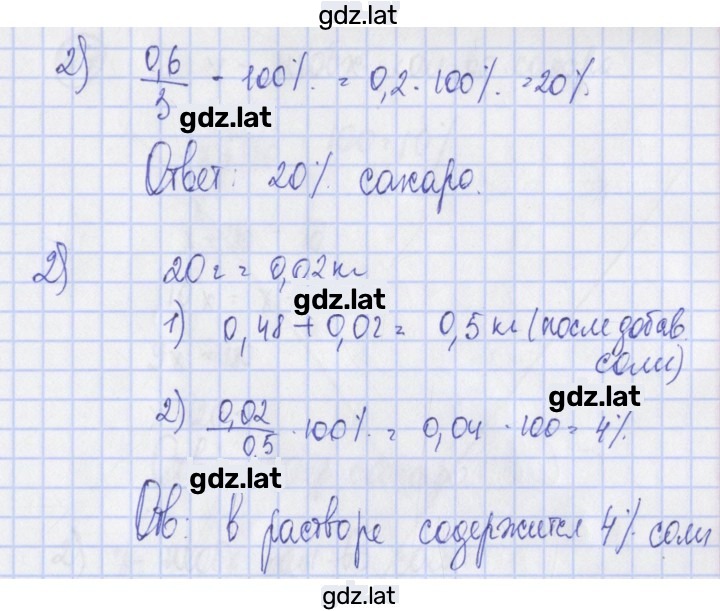 gdz.lat
2) 0,6/3 · 100% = 0,2 · 100% = 20%
gdz.lat
Ответ: 20% сахара.
2) 20 г = 0,02 кг
gdz.lat
1) 0,48 + 0,02 = 0,5 кг (после добав.
соли)
gdz.lat
2) 0,02/0.5 · 100% = 0,04 · 100 = 4%
gdz.lat
Отв: в растворе содержится 4% соли
gdz.lat